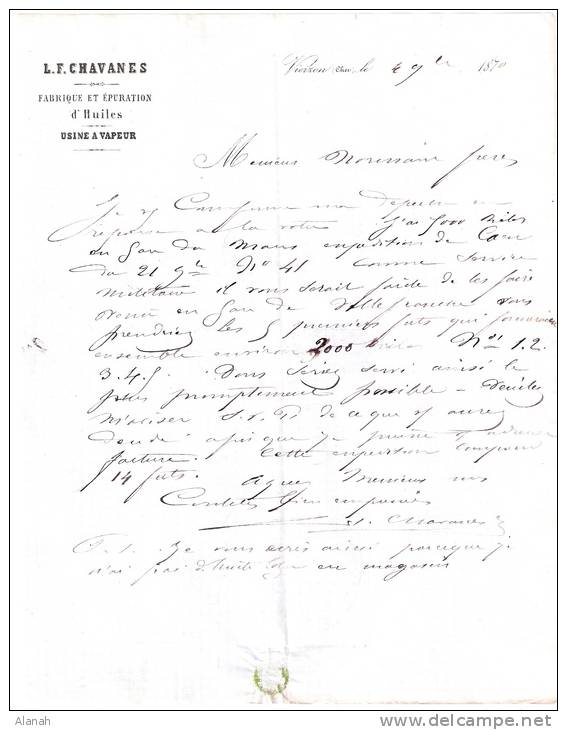 L. F. CHAVANES
FABRIQUE ET ÉPURATION
d'Huiles
USINE A VAPEUR
Vierzon (Cher) le 4 9bre 1870
Messieurs frères
Je Confirme ma Dépêche en
réponse à la votre J'ai 5000 Kilos
en Gare du Mans expédition de Caen
du 21 No 41 Comme Service
militaire il vous serait facile de les faire
venir en Gare de Villefranche vous
prendriez les 5 premiers futs qui
ensemble environ 2000 Kilos Nos 1. 2.
3. 4. 5. Vous seriez servi ainsi le
plus promptement possible - Veuillez
m'aviser S. V. P. de ce que
décidé afin que je puisse adresser
facture. Cette expédition
14 futs. Agréez Messieurs nos
Cordiales bien empressées
Chavanes
P. S. Je vous écris ainsi parceque je
n'ai pas d'huile en magasin
Alanah
www.delcampe.net